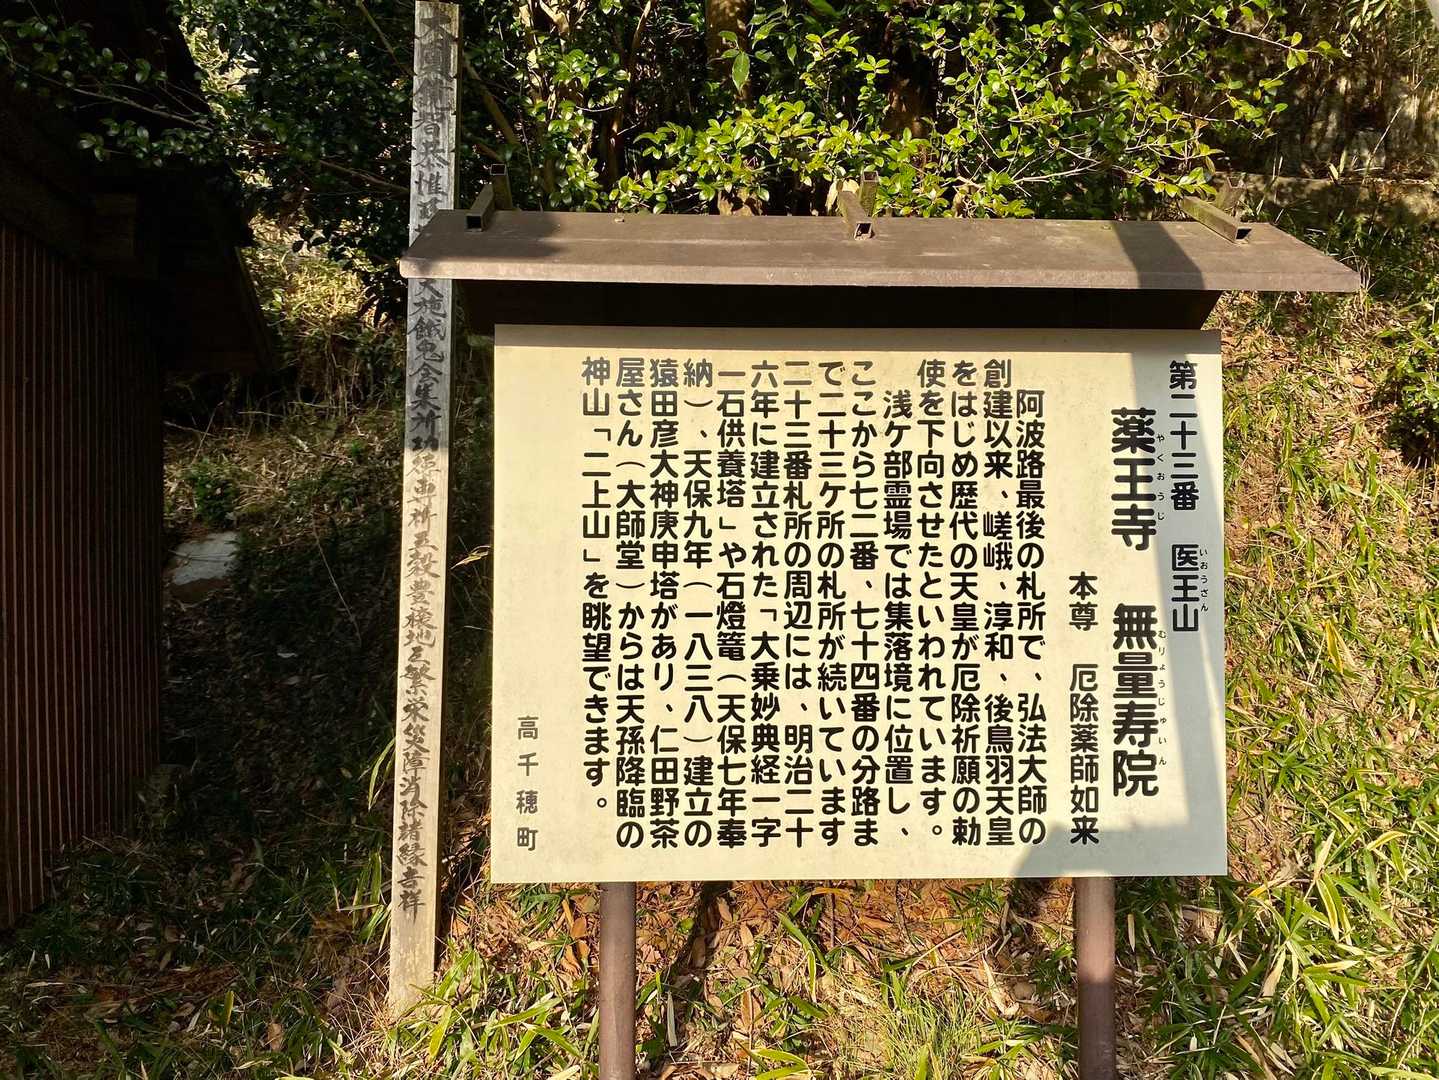 第二十三番　医王山
いおうざん
薬王寺　無量寿院
やくおうじ　むりょうじゅいん
本尊　厄除薬師如来
阿波路最後の札所で、弘法大師の
創建以来、嵯峨、淳和、後鳥羽天皇
をはじめ歴代の天皇が厄除祈願の勅
使を下向させたといわれています。
浅ケ部霊場では集落境に位置し、
ここから七二番、七十四番の分路ま
で二十三ケ所の札所が続いています
二十三番札所の周辺には、明治二十
六年に建立された「大乗妙典経一字
一石供養塔」や石燈篭（天保七年奉
納）、天保九年（一八三八）建立の
猿田彦大神庚申塔があり、仁田野茶
屋さん（大師堂）からは天孫降臨の
神山「二上山」を眺望できます。
高千穂町
大施餓鬼会集所功徳専祈五穀豊穣地区繁栄災障消除諸縁吉祥